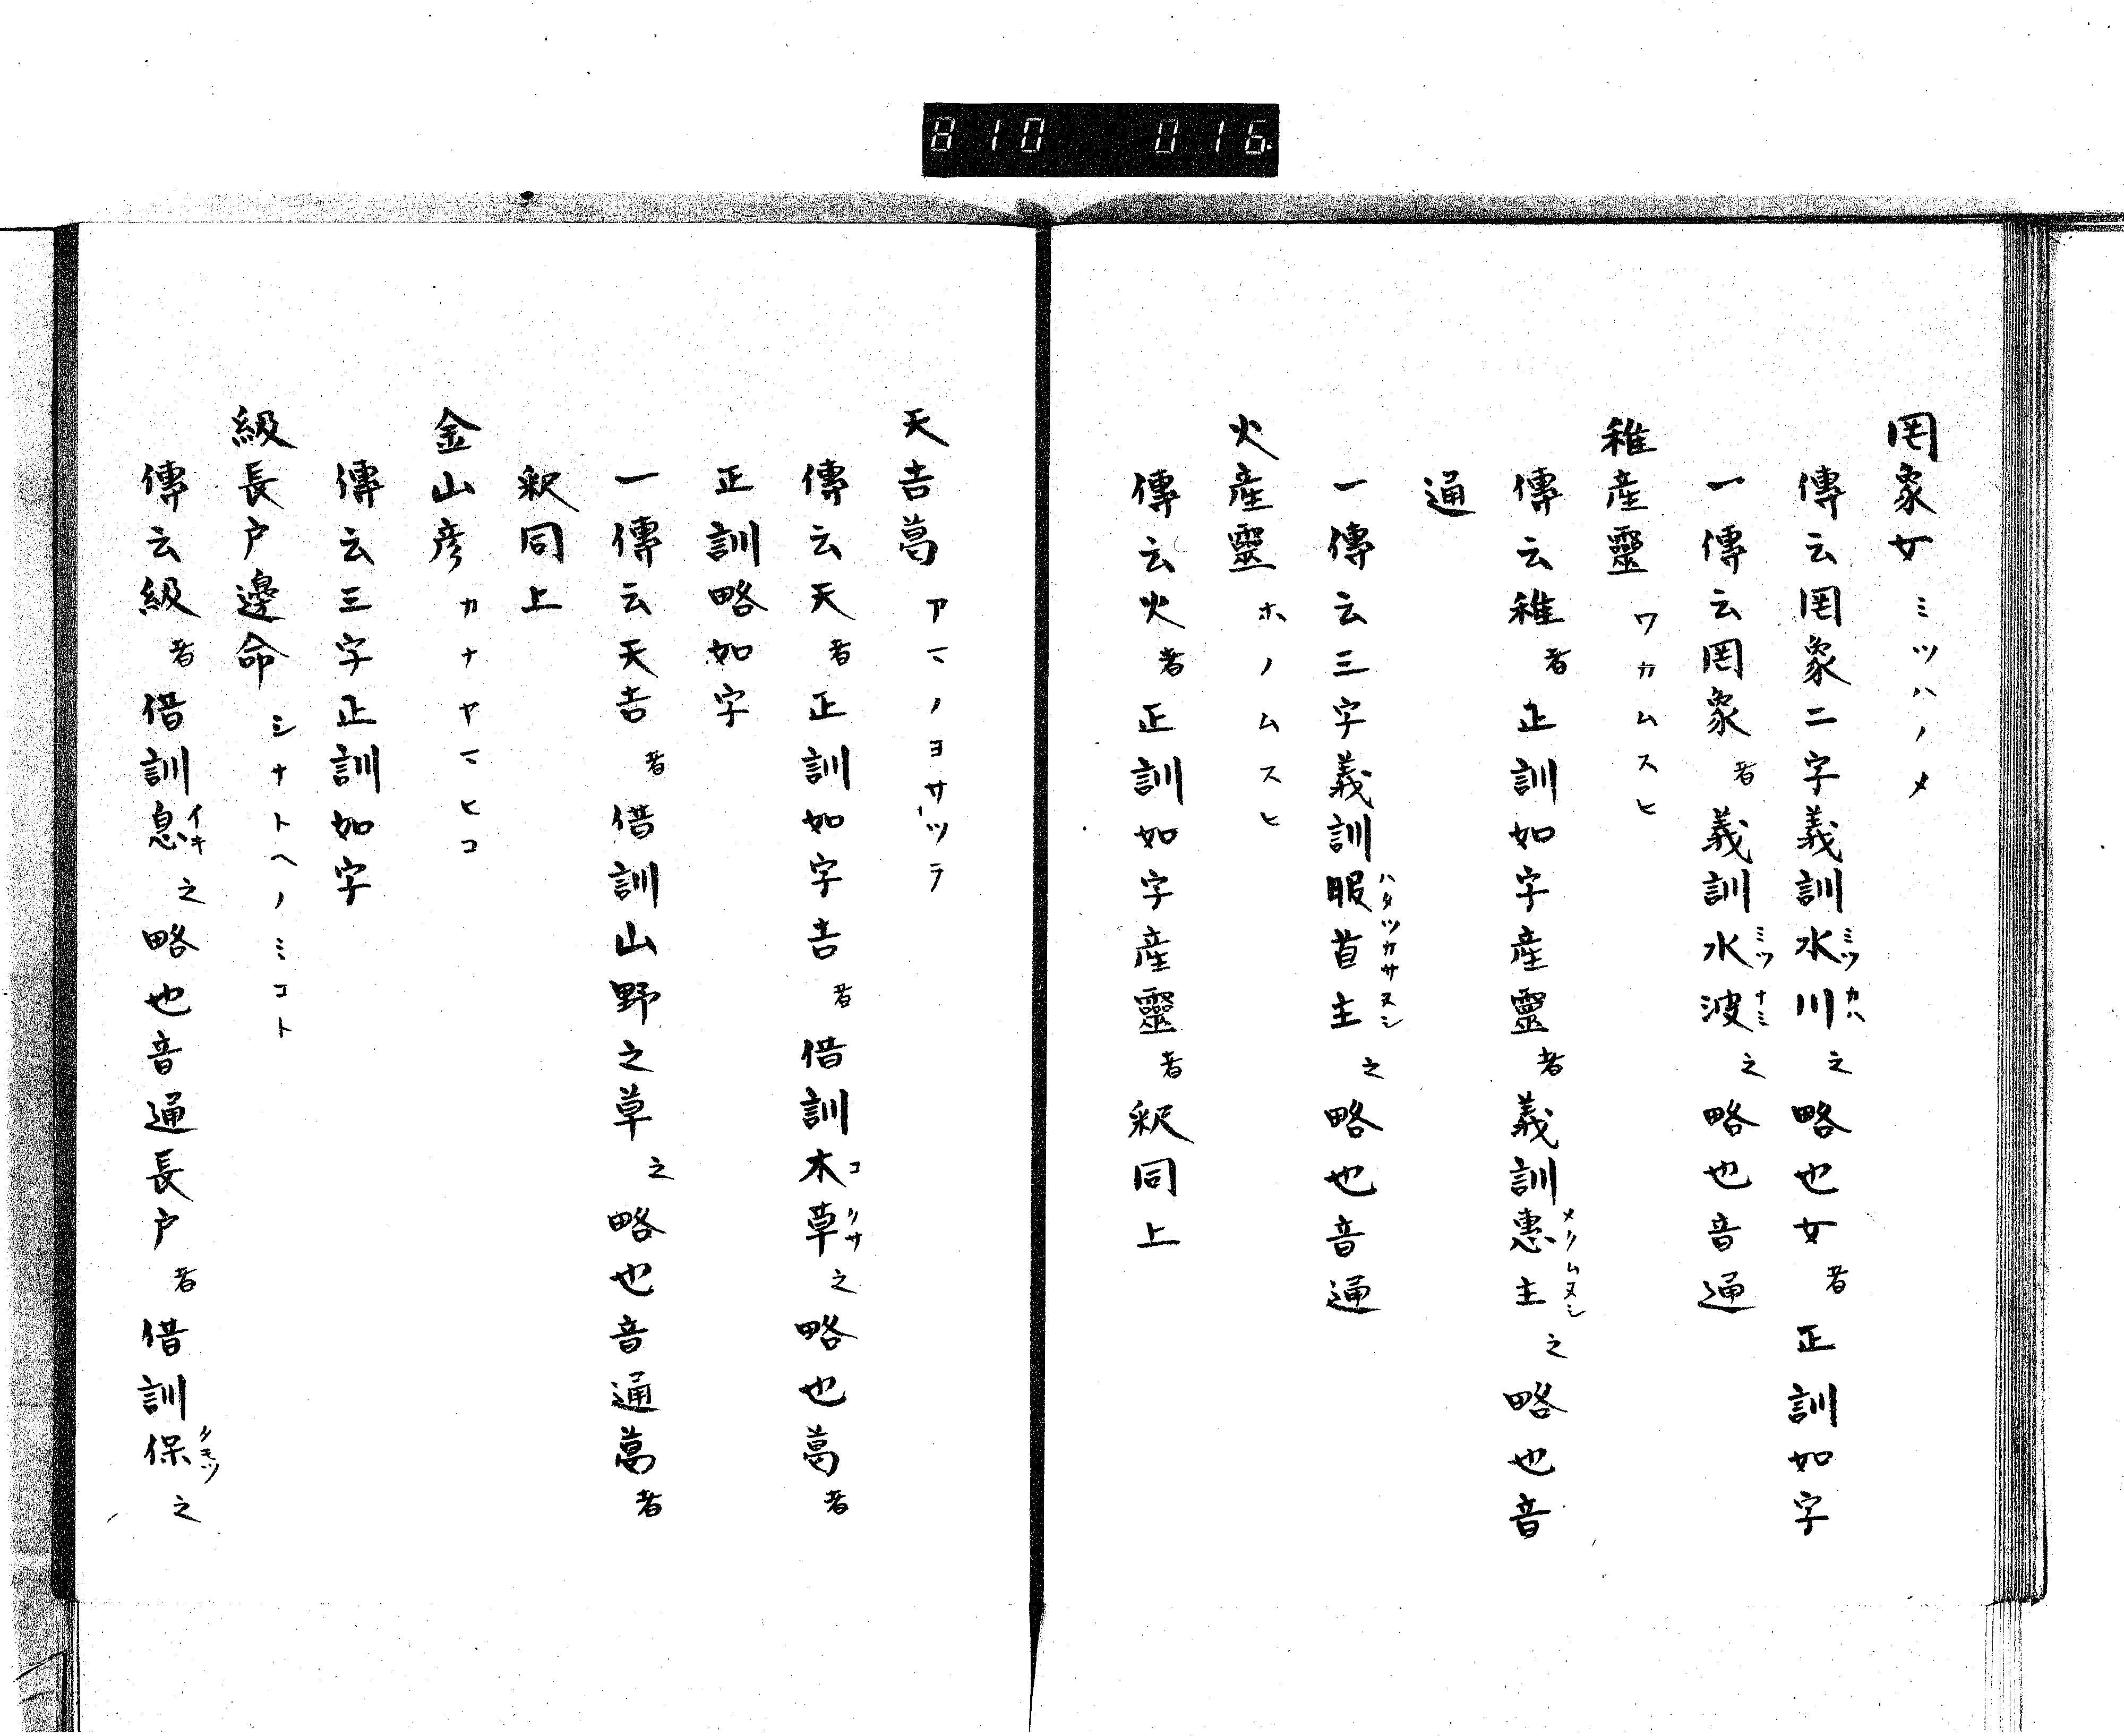 810 016
罔象女 ミツハノメ
傳云罔象二字義訓水川之略也女者正訓如字
ミツ カハ
一傳云罔象者義訓水波之略也音通
ミツ ナミ
稚産靈 ワカムスヒ
傳云稚者正訓如字産靈者義訓惠主之略也音
メクムヌシ
通
一傳云三字義訓服首主之略也音通
ハタツカサヌシ
火産靈 ホノムスヒ
傳云火者正訓如字産靈者釈同上
天吉葛 アマノヨサツラ
傳云天者正訓如字吉者借訓木草之略也葛者
コ クサ
正訓略如字
一傳云天吉者借訓山野之草之略也音通葛者
釈同上
金山彦 カナヤマヒコ
傳云三字正訓如字
級長戸邊命 シナトヘノミコト
傳云級者借訓息之略也音通長戸者借訓保之
イキ
タモツ